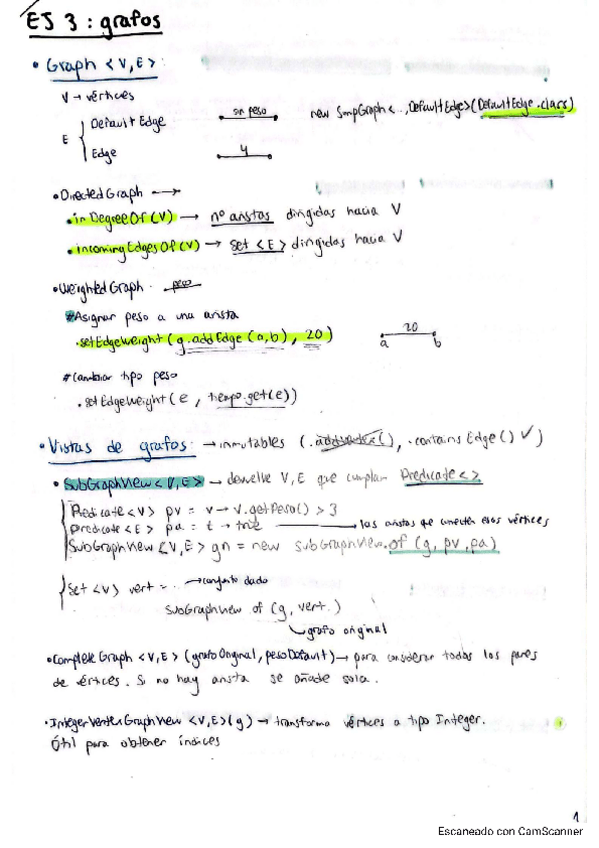 EJ 3 : grafos
• Graph <V,E> :
V → vértices
E { Default Edge
sin peso
new SmpGraph<..,DefaultEdge>(DefaultEdge.class)
Edge
4
• Directed Graph →
• inDegreeOf(V) → nº aristas dirigidas hacia V
• incomingEdgesOf(V) → Set <E> dirigidas hacia V
• Weighted Graph peso
#Asignar peso a una arista
• setEdgeWeight ( g.addEdge (a,b), 20 )
20
a b
# Cambiar tipo peso
• setEdgeWeight ( e , tiempo.get(e))
• Vistas de grafos: → inmutables ( .addVertex(), .contains Edge() ✓ )
• SubGraphView <V,E> → devuelve V,E que cumplan Predicate< >
Predicate <V> pv = v → v.getPeso() > 3
Predicate <E> pa = t → true → las aristas que conecten esos vértices
SubGraphView <V,E> gn = new subGraphView.of (g, pv, pa)
Set <V> vert = .. → conjunto dado
subGraphView of (g, vert.)
→ grafo original
• Complete Graph <V,E> (grafoOriginal, pesoDefault) → para considerar todos los pares
de vértices. Si no hay arista se añade sola.
• IntegerVertexGraphView <V,E>(g) → transforma vértices a tipo Integer.
Útil para obtener índices
1
Escaneado con CamScanner